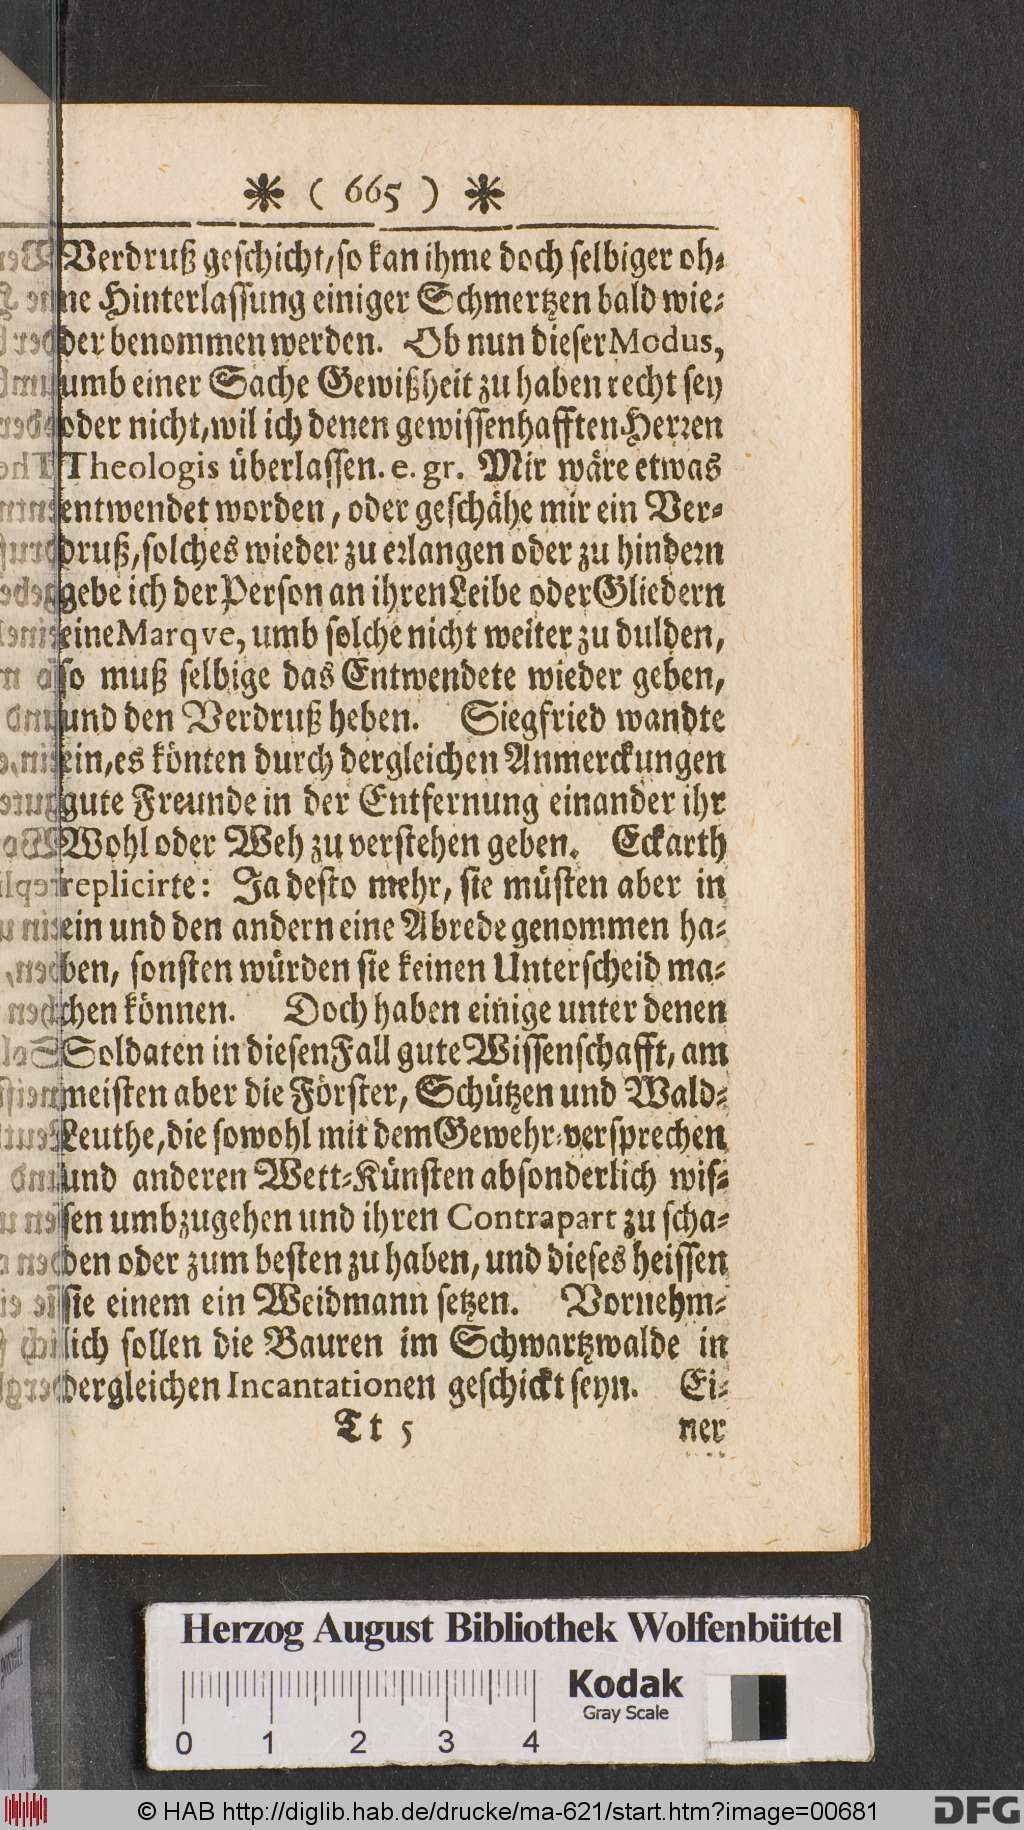 ❋ ( 665 ) ❋
Verdruß geschicht/ so kan ihme doch selbiger oh-
ne Hinterlassung einiger Schmertzen bald wie-
der benommen werden. Ob nun dieser Modus,
umb einer Sache Gewißheit zu haben recht sey
oder nicht, wil ich denen gewissenhafften Herren
Theologis überlassen. e. gr. Mir wäre etwas
entwendet worden, oder geschähe mir ein Ver-
druß, solches wieder zu erlangen oder zu hindern
gebe ich der Person an ihren Leibe oder Gliedern
eine Marqve, umb solche nicht weiter zu dulden,
so muß selbige das Entwendete wieder geben,
und den Verdruß heben. Siegfried wandte
ein, es könten durch dergleichen Anmerckungen
gute Freunde in der Entfernung einander ihr
Wohl oder Weh zu verstehen geben. Eckarth
replicirte: Ja desto mehr, sie müsten aber in
ein und den andern eine Abrede genommen ha-
ben, sonsten würden sie keinen Unterscheid ma-
chen können. Doch haben einige unter denen
Soldaten in diesen Fall gute Wissenschafft, am
meisten aber die Förster, Schützen und Wald-
Leuthe, die sowohl mit dem Gewehr-versprechen
und anderen Wett-Künsten absonderlich wis-
sen umbzugehen und ihren Contrapart zu scha-
den oder zum besten zu haben, und dieses heissen
sie einem ein Weidmann setzen. Vornehm-
lich sollen die Bauren im Schwartzwalde in
dergleichen Incantationen geschickt seyn. Ei-
Tt 5 ner
Herzog August Bibliothek Wolfenbüttel
Kodak
Gray Scale
0 1 2 3 4
© HAB http://diglib.hab.de/drucke/ma-621/start.htm?image=00681
DFG